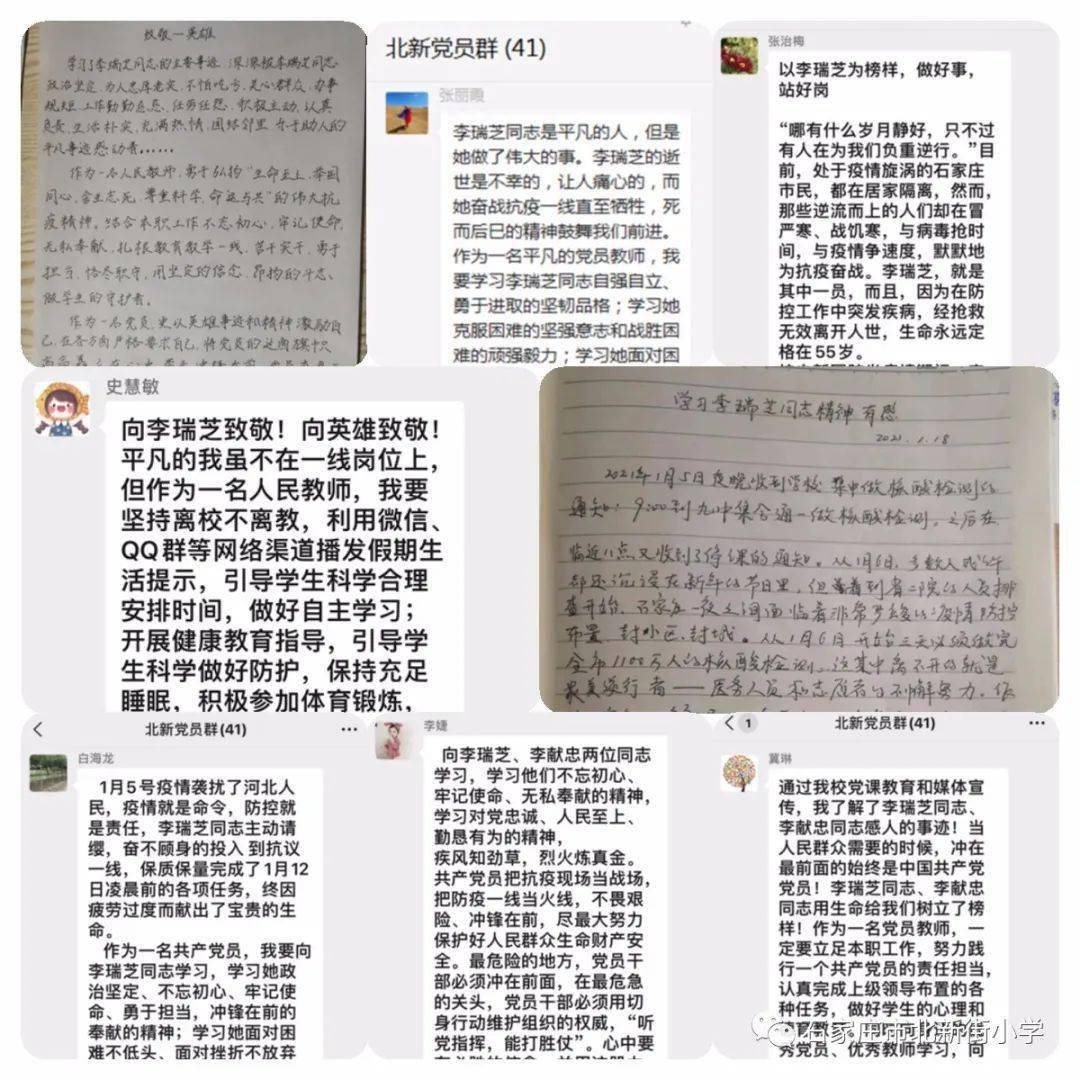 致敬一英雄
学习了李瑞芝同志的主要事迹，深深被李瑞芝同志
政治坚定、为人忠厚老实、不怕吃亏、关心群众、办事
规矩、工作勤勤恳恳、任劳任怨、积极主动、认真
负责、生活朴实、充满热情、团结邻里、乐于助人的
平凡事迹感动着……
作为一名人民教师，勇于弘扬“生命至上、举国
同心、舍生忘死、尊重科学、命运与共”的伟大抗
疫精神。结合本职工作不忘初心，牢记使命，
无私奉献，扎根教育教学一线，苦干实干，勇于
担当，恪尽职守，用坚定的信念，昂扬的斗志，
做学生的守护者。
作为一名党员，更以英雄事迹和精神激励自
己，在各方面严格要求自己，将党员的这面旗帜
北新党员群 (41)
张丽霞
李瑞芝同志是平凡的人，但是
她做了伟大的事。李瑞芝的逝
世是不幸的，让人痛心的，而
她奋战抗疫一线直至牺牲，死
而后已的精神鼓舞我们前进。
作为一名平凡的党员教师，我
要学习李瑞芝同志自强自立、
勇于进取的坚韧品格；学习她
克服困难的坚强意志和战胜困
难的顽强毅力；学习她面对困
张治梅
以李瑞芝为榜样，做好事，
站好岗
“哪有什么岁月静好，只不过
有人在为我们负重逆行。”目
前，处于疫情旋涡的石家庄
市民，都在居家隔离，然而，
那些逆流而上的人们却在冒
严寒、战饥寒，与病毒抢时
间，与疫情争速度，默默地
为抗疫奋战。李瑞芝，就是
其中一员，而且，因为在防
控工作中突发疾病，经抢救
无效离开人世，生命永远定
格在55岁。
史慧敏
向李瑞芝致敬！向英雄致敬！
平凡的我虽不在一线岗位上，
但作为一名人民教师，我要
坚持离校不离教，利用微信、
QQ群等网络渠道播发假期生
活提示，引导学生科学合理
安排时间，做好自主学习；
开展健康教育指导，引导学
生科学做好防护，保持充足
睡眠，积极参加体育锻炼，
学习李瑞芝同志精神有感
2021.1.18
2021年1月5日夜晚收到学校集中做核酸检测的
通知：9:00到九中集合通一做核酸检测。之后在
临近八点又收到了停课的通知。从1月6日，多数人
都还沉浸在新年的节日里，但看到省二院的人员排
查开始，石家庄一夜之间面临着非常严峻的疫情防控
布置，封小区，封城。从1月6日开始三天必须做完
全市1100万人的核酸检测。这其中离不开的就是
最美逆行者——医务人员和志愿者的不懈努力。
北新党员群(41)
白海龙
1月5号疫情袭扰了河北人
民，疫情就是命令，防控就
是责任，李瑞芝同志主动请
缨，奋不顾身的投入 到抗议
一线，保质保量完成了1月12
日凌晨前的各项任务，终因
疲劳过度而献出了宝贵的生
命。
作为一名共产党员，我要向
李瑞芝同志学习，学习她政
治坚定、不忘初心、牢记使
命、勇于担当，冲锋在前的
奉献的精神；学习她面对困
难不低头、面对挫折不放弃
李婕
向李瑞芝、李献忠两位同志
学习，学习他们不忘初心、
牢记使命、无私奉献的精神，
学习对党忠诚、人民至上、
勤恳有为的精神，
疾风知劲草，烈火炼真金。
共产党员把抗疫现场当战场，
把防疫一线当火线，不畏艰
险、冲锋在前，尽最大努力
保护好人民群众生命财产安
全。最危险的地方，党员干
部必须冲在前面，在最危急
的关头，党员干部必须用切
身行动维护组织的权威，“听
党指挥，能打胜仗”。心中要
1
北新党员群(41)
冀琳
通过我校党课教育和媒体宣
传，我了解了李瑞芝同志、
李献忠同志感人的事迹！当
人民群众需要的时候，冲在
最前面的始终是中国共产党
党员！李瑞芝同志、李献忠
同志用生命给我们树立了榜
样！作为一名党员教师，一
定要立足本职工作，努力践
行一个共产党员的责任担当，
认真完成上级领导布置的各
种任务，做好学生的心理和
秀党员、优秀教师学习，向
石家庄市北新街小学